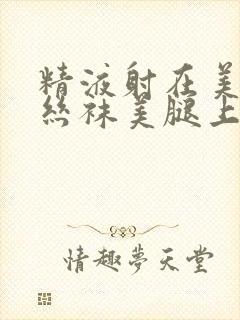 精液射在美
絲袜美腿上
情趣夢天堂